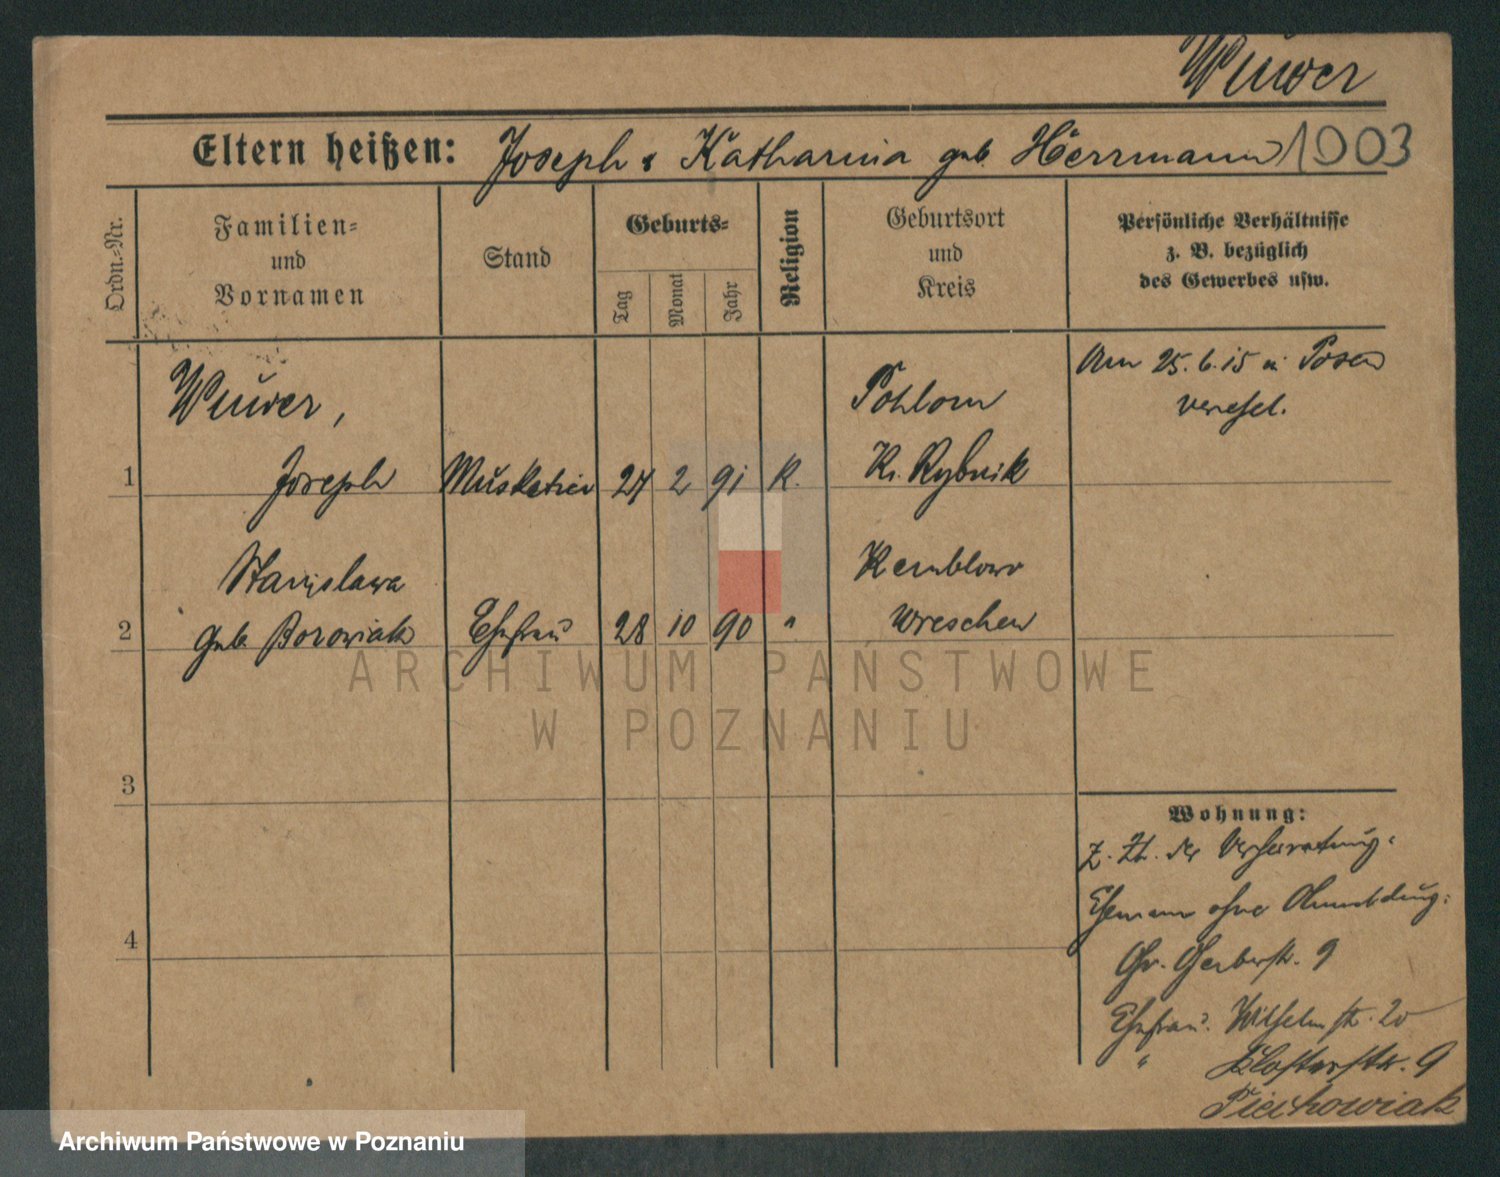 Wuwer
Eltern heißen: Joseph & Katharina geb. Herrmann 1003
Ordn.-Nr.
Familien-
und
Vornamen
Stand
Geburts-
Tag
Monat
Jahr
Religion
Geburtsort
und
Kreis
Persönliche Verhältnisse
z. B. bezüglich
des Gewerbes usw.
Am 25.6.15 in Posen
verehel.
Wuwer,
Pohlom
1 Joseph Musketier 24 2 91 K. Kr. Rybnik
Stanislawa
Kemblowo
2 geb. Borowiak Ehefrau 28 10 90 " Wreschen
3
4
Wohnung:
z. Zt. der Verheiratung:
Ehemann ohne Anmeldung:
Gr. Gerberstr. 9
Ehefrau: Wilhelmstr. 20
" Klosterstr. 9
Piechowiak
ARCHIWUM PAŃSTWOWE
W POZNANIU
Archiwum Państwowe w Poznaniu